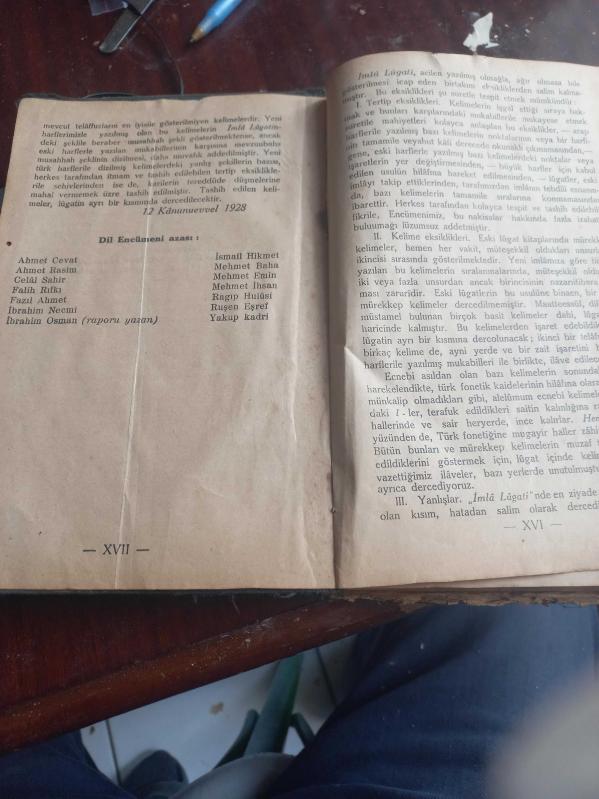 mevcut telâffuzların en iyisile gösterilmiyen kelimelerdir. Yeni
harflerimizle yazılmış olan bu kelimelerin İmlâ Lûgatın-
deki şekille beraber musahhah şekli gösterilmektense, ancak
eski harflerle yazılan mukabillerinin karşısına mevzuubahs
musahhah şeklinin dizilmesi, daha muvafık addedilmiştir. Yeni
türk harflerile dizilmiş kelimelerdeki yanlış şekillerin bazısı,
herkes tarafından itmam ve tashih edilebilen tertip eksiklikle-
rile sehivlerinden ise de, karilerin tereddüde düşmelerine
mahal vermemek üzre tashih edilmiştir. Tashih edilen keli-
meler, lûgatin ayrı bir kısmında dercedilecektir.
12 Kânunuevvel 1928
Dil Encümeni azası :
Ahmet Cevat
Ahmet Rasim
Celâl Sahir
Falih Rıfkı
Fazıl Ahmet
İbrahim Necmi
İbrahim Osman (raporu yazan)
İsmail Hikmet
Mehmet Baha
Mehmet Emin
Mehmet İhsan
Ragıp Hulûsi
Ruşen Eşref
Yakup kadri
— XVII —
İmlâ Lûgati, acilen yazılmış olmağla, ağır olmasa bile
gösterilmesi icap eden birtakım eksikliklerden salim kalma-
mıştır. Bu eksiklikleri şu suretle tespit etmek mümkündür :
I. Tertip eksiklikleri. Kelimelerin işgal ettiği sıraya bak-
mak ve bunları karşılarındaki mukabillerile mukayese etmek
suretile mahiyetleri kolayca anlaşılan bu eksiklikler, — arap
harflerile yazılmış bazı kelimelerin noktalarının veya bir harfi-
nin tamamile veyahut kâfi derecede okunaklı çıkmamasından,—
gene, eski harflerle yazılmış bazı kelimelerdeki noktalar veya
işaretlerin yer değiştirmesinden, — büyük harfler için kabul
edilen usulün hilâfına hareket edilmesinden, — lûgatler, eski
imlâyı takip ettiklerinden, tarafımızdan imlânın tebdili esnasın-
da, bazı kelimelerin tamamile sıralarına konmamasından
ibarettir. Herkes tarafından kolayca tespit ve tashih edilebil
fikrile, Encümenimiz, bu nakisalar hakkında fazla izahat
bulunmağı lüzumsuz addetmiştir.
II. Kelime eksiklikleri. Eski lûgat kitaplarında mürekk
kelimeler, hemen her vakit, müteşekkil oldukları unsurla
ikincisi sırasında gösterilmektedir. Yeni imlâmıza göre bi
yazılan bu kelimelerin sıralanmalarında, müteşekkil old
iki veya fazla unsurdan ancak birincisinin nazarıitibara
ması zaruridir. Eski lûgatlerin bu usulüne binaen, bir
mürekkep kelimeler dercedilmemiştir. Maatteessüf, dil
müstamel bulunan birçok basit kelimeler dahi, lûgat
haricinde kalmıştır. Bu kelimelerden işaret edebildik
lûgatin ayrı bir kısmında dercolunacak; ikinci bir telâf
birkaç kelime de, ayni yerde ve bir zait işaretini h
harflerile yazılmış mukabilleri ile birlikte, ilâve edilece
Ecnebi asıldan olan bazı kelimelerin sonundak
harekelendikte, türk fonetik kaidelerinin hilâfına olara
münkalip olmadıkları gibi, alelûmum ecnebi kelimele
daki l - ler, terafuk edildikleri saitin kalınlığına ra
hallerinde ve sair heryerde, ince kalırlar. Hem
yüzünden de, Türk fonetiğine mugayir haller zâhi
Bütün bunları ve mürekkep kelimelerin muzaf t
edildiklerini göstermek için, lûgat içinde kelim
vazettiğimiz ilâveler, bazı yerlerde unutulmuştu
ayrıca dercediyoruz.
III. Yanlışlar. „İmlâ Lûgati" nde en ziyade
olan kısım, hatadan salim olarak dercedi
— XVI —